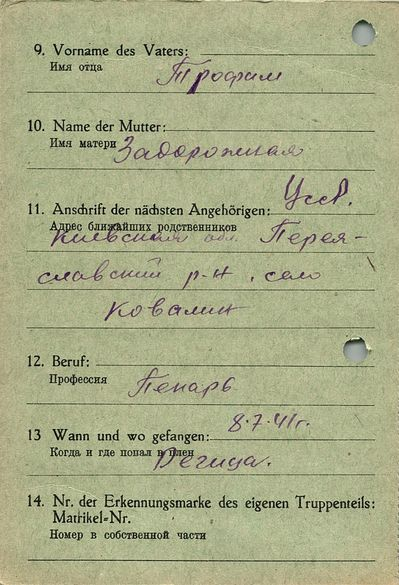 9. Vorname des Vaters:
Имя отца
Трофим
10. Name der Mutter:
Имя матери
Задорожная
Усср.
11. Anschrift der nächsten Angehörigen:
Адрес ближайших родственников
Киевская обл. Перея-
славский р-н, село
Ковалин
12. Beruf:
Профессия
Пекарь
8.7.41г.
13 Wann und wo gefangen:
Когда и где попал в плен
14. Nr. der Erkennungsmarke des eigenen Truppenteils:
Matrikel-Nr.
Номер в собственной части